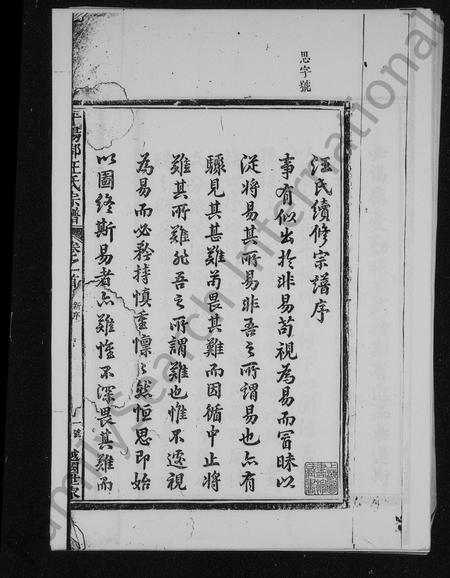 思字號
汪氏續修宗譜序
事有似出於非易苟視為易而冒昧以
從將易其所易非吾之所謂易也亦有
驟見其甚難苟畏其難而因循中止將
難其所難非吾之所謂難也惟不遽視
為易而必矜持慎重懍之然恒思即始
以圖終斯易者亦難惟不深畏其難而
平陽郡汪氏宗譜
卷之首
新序
一號
越國世家
FamilySearch International